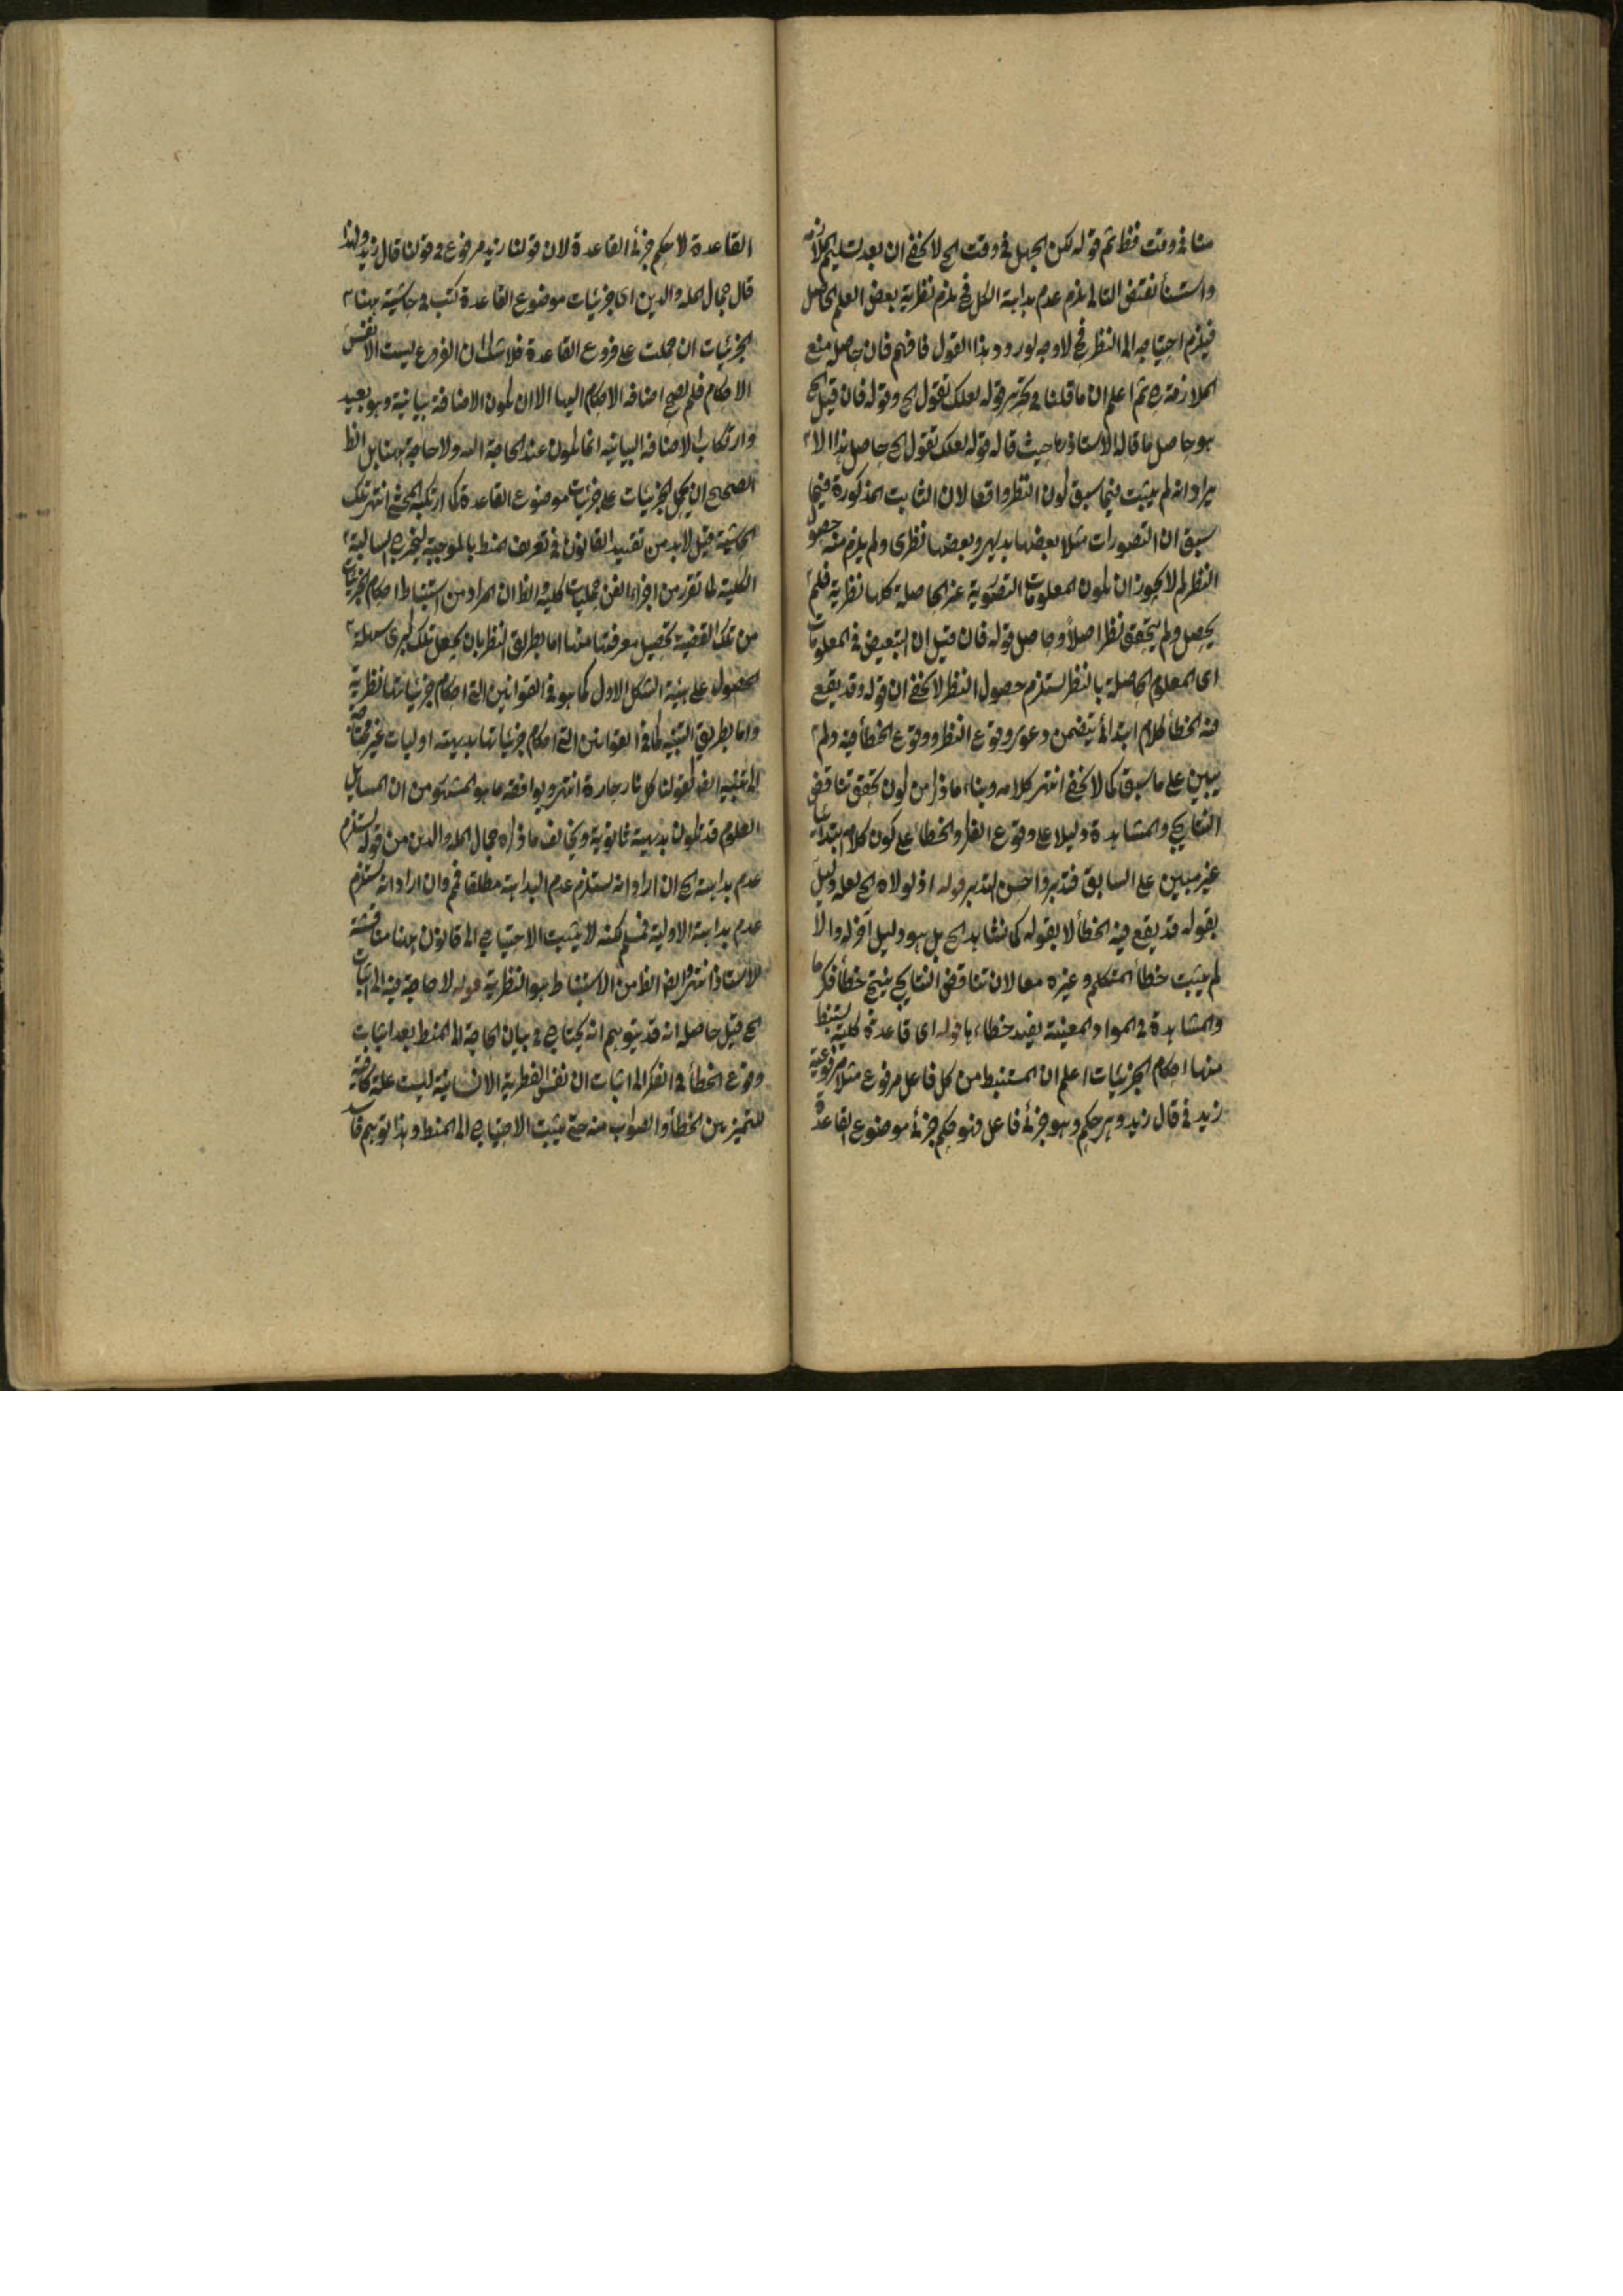 منا في وقت فظ ثم قوله لكن الجهل في وقت الخ لا يخفى ان بعد تسليم الملازمة
واستثناء نقيض التالي يلزم عدم بداهة الكل فح يلزم نظرية بعض العلم الحاصل
فيلزم احتياجه الى النظر فح لا وجه لورود هذا القول فافهم فان حاصله منع
الملازمة ثم اعلم ان ما قلنا في تحرير قوله لعلك تقول الخ وقوله فان قيل الخ
هو حاصل ما قاله الاستاذ حيث قال قوله لعلك تقول الخ حاصل هذا الا
يراد انه لم يثبت فيما سبق كون النظر واقعا لان الثابت المذكورة فيما
سبق ان التصورات مثلا بعضها بديهي وبعضها نظري ولم يلزم منه حصول
النظر لم لا يجوز ان يكون المعلومات التصورية عير الحاصلة كلها نظرية فلم
يحصل ولم يتحقق نظر اصلا وحاصل قوله فان قيل ان التبعيض في المعلومات
اى المعلوم الحاصلة بالنظر يستلزم حصول النظر لا يخفى ان قوله وقد يقع
فيه الخطأ كلام ابتدائي يتضمن دعوى وقوع النظر ووقوع الخطأ فيه ولم
يبين على ما سبق كما لا يخفى انتهى كلامه وبناء ما ذكر من كون تحقق تناقض
النتايج والمشاهدة دليلا على وقوع الفكر والخطأ على كون كلام ابتدائيا
غير مبين على السابق فتدبر واحسن التدبر قوله اذ لولاه الخ لعله دليل
بقوله قد يقع فيه الخطأ لا بقوله كما نشاهد الخ بل هو دليل آخر له والا
لم يثبت خطأ المتكلم وغيره معا لان تناقض النتايج ينتج خطأ فكر ما
والمشاهدة في المواد المعينة يفيد خطاءها قوله اى قاعدة كلية يستنبط
منها احكام الجزئيات اعلم ان المستنبط من كل فاعل مرفوع مثلا مرفوعية
زيد في قال زيد وهي حكم وهو جزئي فاعل فهو حكم جزئي موضوع القاعدة
القاعدة لا حكم جزئي القاعدة لان قولنا زيد مرفوع في قولنا قال زيد ولهذا
قال جمال المله والدين اى جزئيات موضوع القاعدة كتب في حاشية هنا
الجزئيات ان حملت على فروع القاعدة فلا شك ان الفروع ليست الا نفس
الاحكام فلم يصح اضافة الاحكام اليها الا ان يكون الاضافة بيانية وهو بعيد
وارتكاب الاضافة البيانية انما يكون عند الحاجة اليه ولا حاجة ههنا بل الظ
الصحيح ان يحمل الجزئيات على جزئيات موضوع القاعدة كما ارتكبه المحشي انتهى تلك
الحاشية قيل لابد من تقييد القانون في تعريف المنط بالموجبة ليخرج السالبة
الكلية لما تقرر من اجزاء الفن حمليات كلية والظ ان المراد من استنباط احكام الجزئيات
من تلك القضية تحصيل معرفتها منها اما بطريق النظر بان يجعل تلك كبرى سهلة
الحصول على هيئة الشكل الاول كما هو في القوانين التي احكام جزئياتها نظرية
واما بطريق التنبيه كما في القوانين التي احكام جزئياتها بديهية اوليات غير محتاجة
الى تنبيه ايضا كقولنا كل نار حارة انتهى ويوافقه ما هو المشهور من ان المسايل
العلوم قد تكون بديهية ثانوية ويخالف ما ذكره جمال المله والدين من قوله يستلزم
عدم بداهية الخ ان اراد انه يستلزم عدم البداهية مطلقا فم وان اراد انه يستلزم
عدم بداهية الاولية فمسلم لكنه لا يثبت الاحتياج الى قانون هذا مناقشة
للاستاذ انتهى وايضا الظ من الاستنباط هو النظرية قوله لا حاجة فيه الى اثبات
الخ قيل حاصله انه قد يتوهم انه يحتاج في بيان الحاجة الى المنط بعد اثبات
وقوع الخطأ في الفكر الى اثبات ان نفس الفطرية الانسانية ليست علة كافية
للتميز بين الخطأ والصواب منه حتى يثبت الاحتياج الى المنط وهذا توهم فاسد